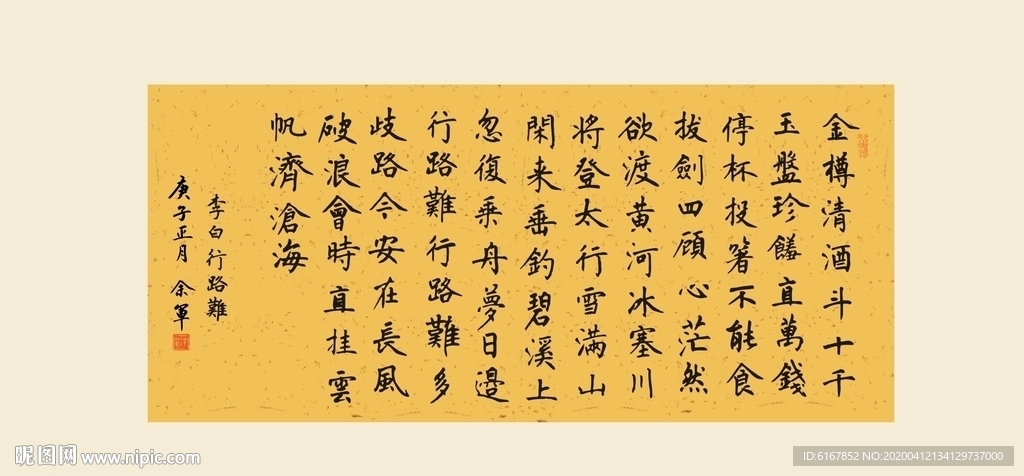 金樽清酒斗十千
玉盤珍饈直萬錢
停杯投箸不能食
拔劍四顧心茫然
欲渡黄河冰塞川
將登太行雪滿山
閑来垂釣碧溪上
忽復乘舟夢日邊
行路難行路難多
歧路今安在長風
破浪會時直挂雲
帆濟滄海
李白行路難
庚子正月 余軍
昵图网 www.nipic.com
ID:6167852 NO:20200412134129737000